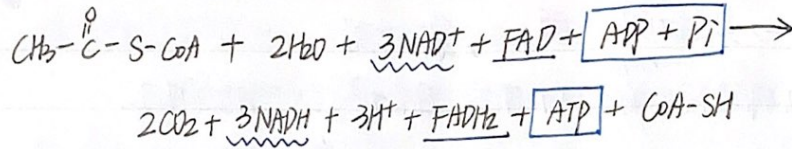 CH3-C(=O)-S-CoA + 2H2O + 3NAD+ + FAD + ADP + Pi →
2CO2 + 3NADH + 3H+ + FADH2 + ATP + CoA-SH